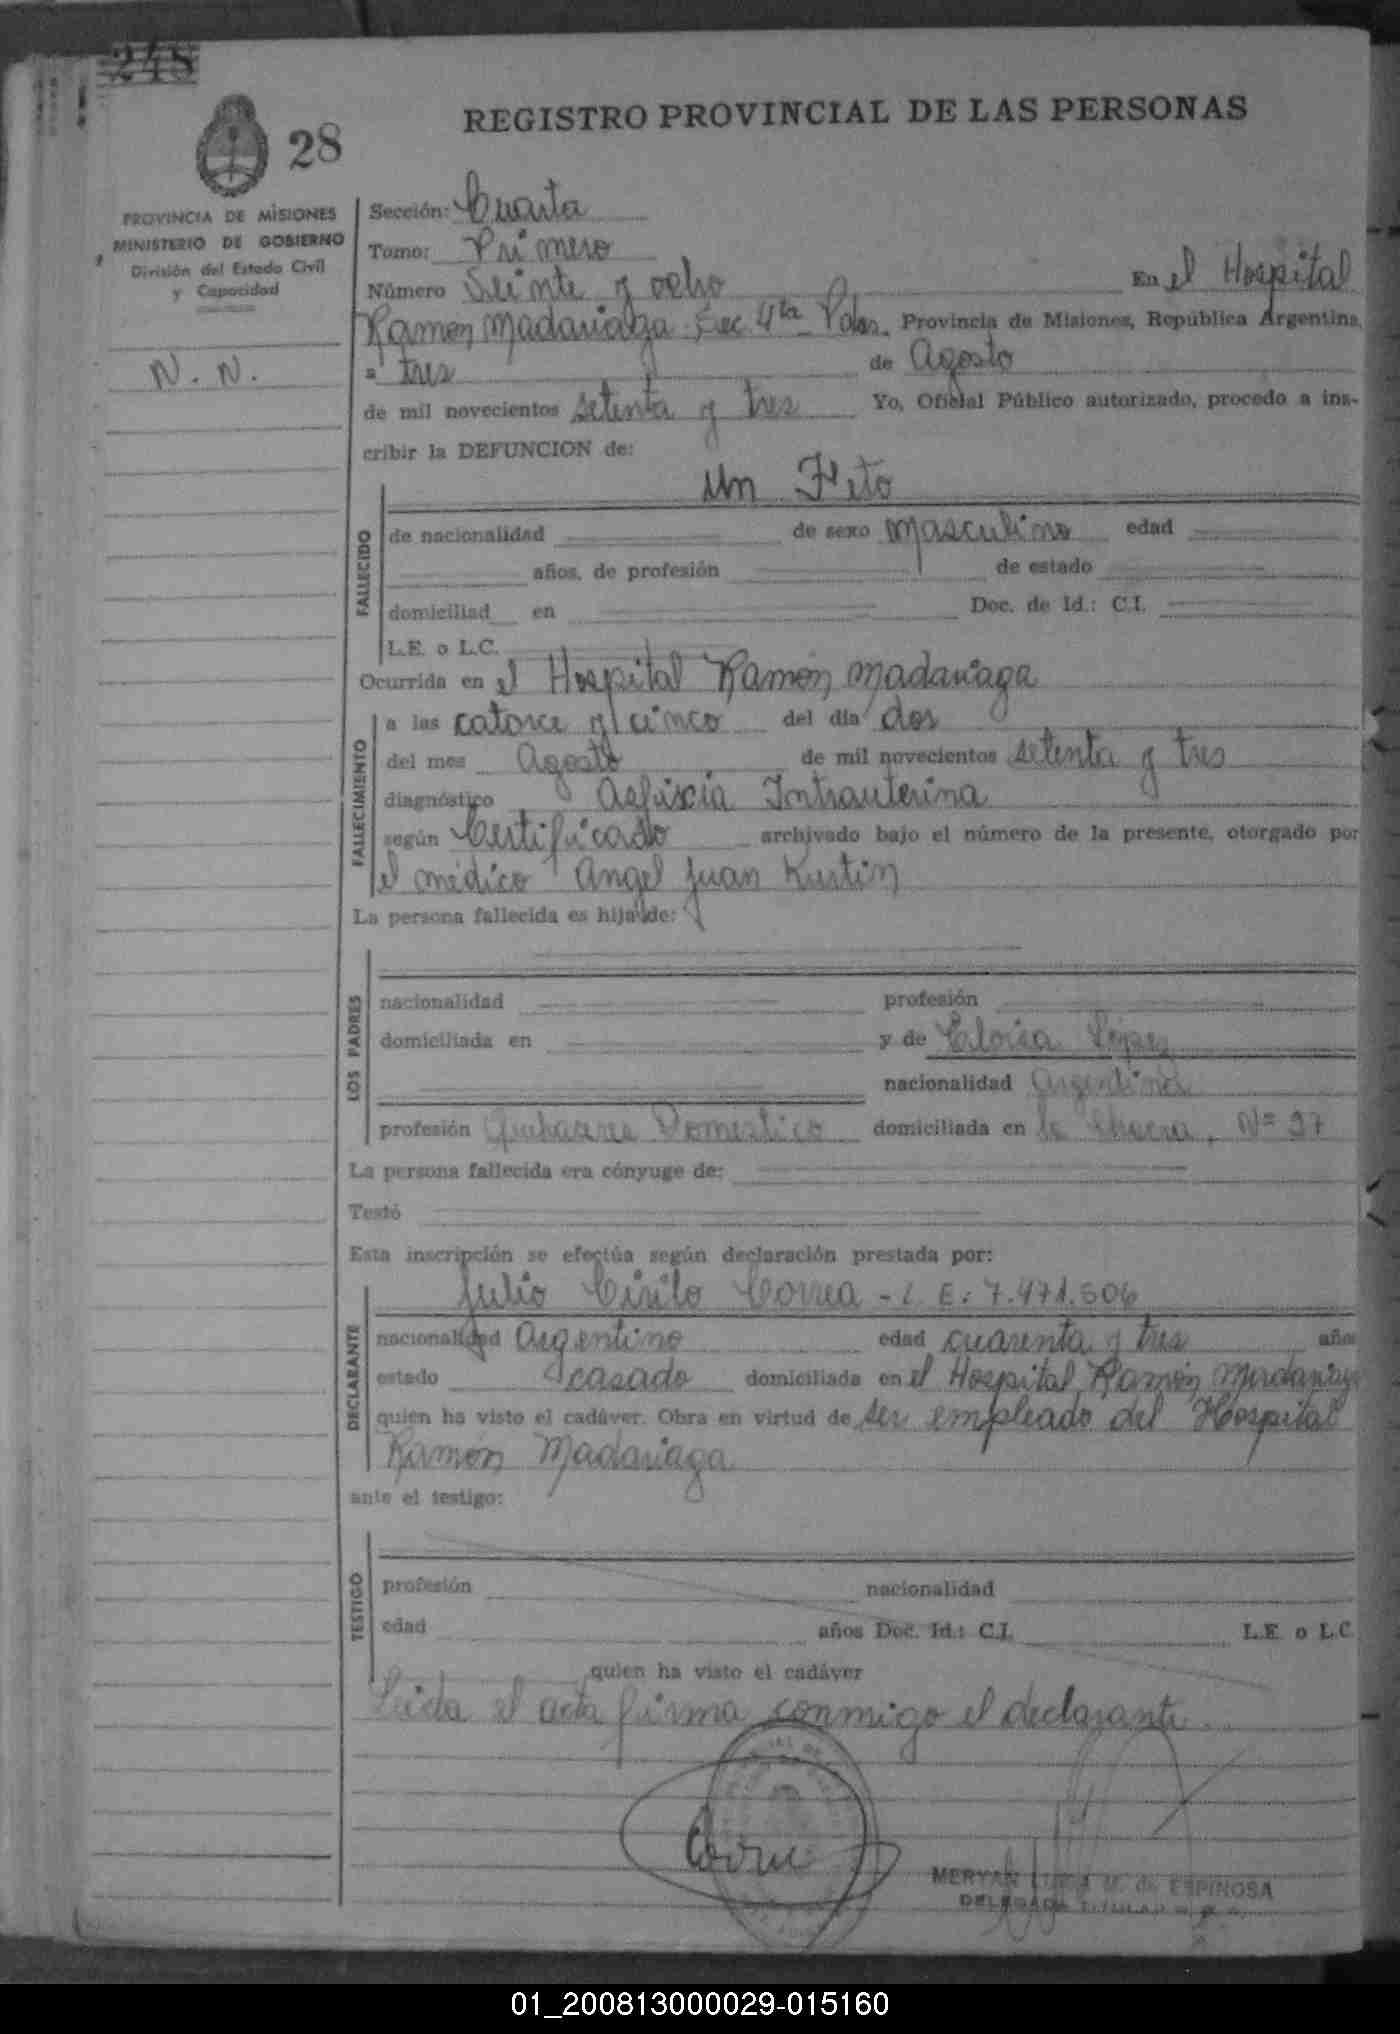 248
28
REGISTRO PROVINCIAL DE LAS PERSONAS
PROVINCIA DE MISIONES
MINISTERIO DE GOBIERNO
División del Estado Civil
y Capacidad
N. N.
Sección: Cuarta
Tomo: Primero
Número Veinte y ocho En el Hospital
Ramón Madariaga Sec. 4ta Pdas. Provincia de Misiones, República Argentina,
a tres de Agosto
de mil novecientos setenta y tres Yo, Oficial Público autorizado, procedo a ins-
cribir la DEFUNCION de:
un Feto
FALLECIDO
de nacionalidad de sexo masculino edad
años, de profesión de estado
domiciliad en Doc. de Id.: C.I.
L.E. o L.C.
Ocurrida en el Hospital Ramón Madariaga
FALLECIMIENTO
a las catorce y cinco del día dos
del mes Agosto de mil novecientos setenta y tres
diagnóstico Asfixia Intrauterina
según Certificado archivado bajo el número de la presente, otorgado por
el médico Angel Juan
La persona fallecida es hija de:
LOS PADRES
nacionalidad profesión
domiciliada en y de Eloisa López
nacionalidad Argentina
profesión Quehacere Domestico domiciliada en la Chacra, Nº 97
La persona fallecida era cónyuge de:
Testó
Esta inscripción se efectúa según declaración prestada por:
Julio Cirilo Correa - L. E: 7.471.506
DECLARANTE
nacionalidad Argentino edad cuarenta y tres años
estado casado domiciliada en el Hospital Ramón Madariaga
quien ha visto el cadáver. Obra en virtud de ser empleado del Hospital
Ramón Madariaga
ante el testigo:
TESTIGO
profesión nacionalidad
edad años Doc. Id.: C.I. L.E. o L.C.
quien ha visto el cadáver
Leida el acta firma conmigo el declarante.
Correa
MERYAN M. de ESPINOSA
DELEGADA TITULAR
01_200813000029-015160